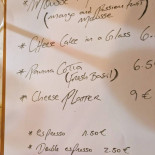 * Mousse
(orange and Passions fruit)
mousse
* Cheese Cake in a Glass 6.
* Panna Cotta 6.5
(fresh Basil)
* Cheese Platter 9 €
* espresso 1.80€
* Double espresso 2.50€